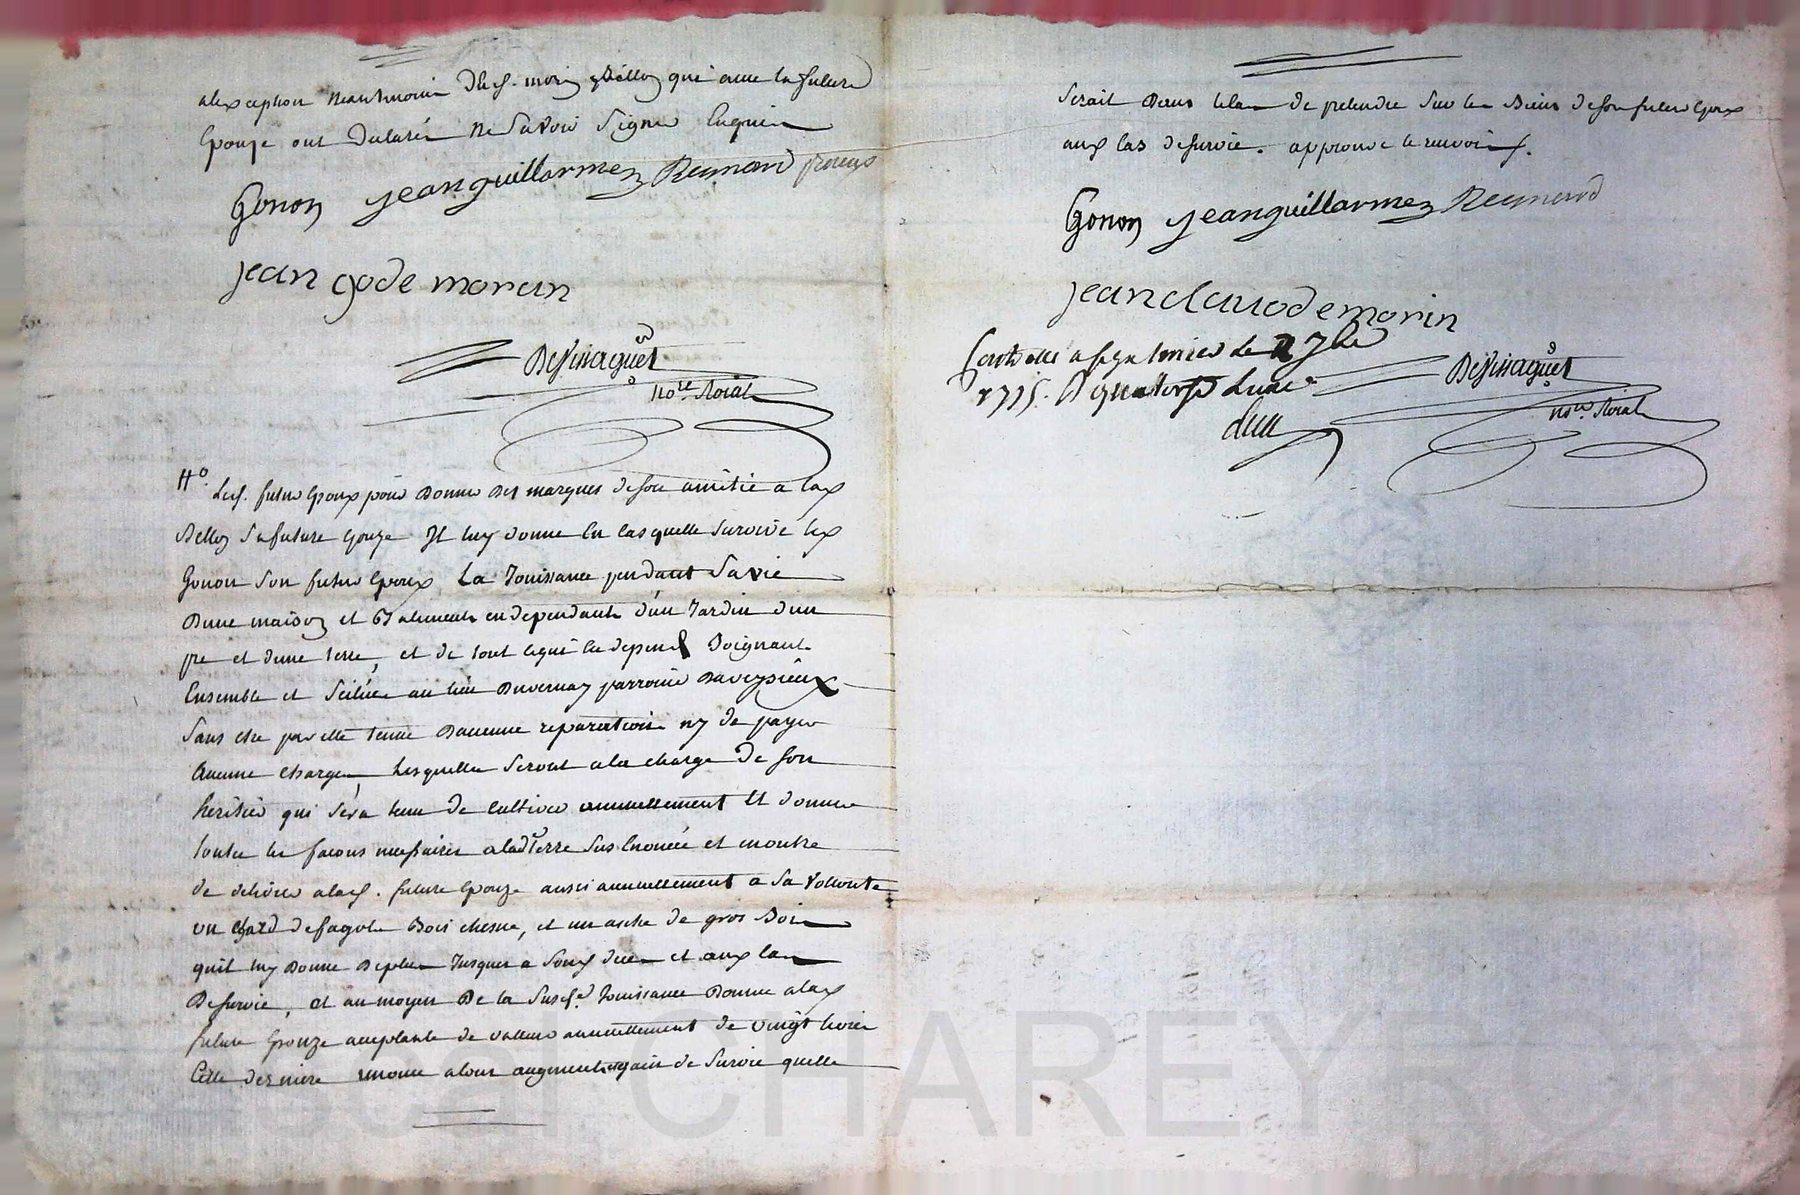 alexception neantmoins Dud. morin & Bellon qui avec la future
Epouze ont Declarés ne savoir signer Enquis
Gonon jeanguillarmez Reimard
jean gode morain
DeVinaguet
no.re Roial
Led. futur Epoux pour donner des marques deson amitié a lad.
Bellon Safuture epouze Il luy donne en cas quelle survive led.
Gonon son futur Epoux La Jouissance pendant Sa vie
Dune maison et Batiments endependants d'un Jardin dun
pré et dune terre, et de tout cequi en depend Joignants
Ensemble et scitués au lieu Duvernay parroisse Daveysieux
sans etre par elle tenue Daucune reparation ny de payer
Aucune charges, Lesquelles seront ala charge de son
heritier qui sera tenu de cultiver annuellement Et donner
toutes les façons necessaires aladte terre sus Enoncée et outre
de delivrer alad. future Epouze aussi annuellement a sa volonté
un chard defagots Bois chesne, et un autre de gros Bois
quil luy donne Deplus Jusques a son deces et aud. cas
Desurvie, et au moyen De la susd. Jouissance Donnée alad.
future Epouze acceptante de valleur annuellement de vingt livres
Cette derniere renonce atous augments et gain de survie quelle
serait Dans le cas de pretendre sur les Biens deson futur Epoux
aud. cas desurvie. approuvé le renvoi.
Gonon jeanguillarmez Reimard
jeanclauode morin
Controllé a le 2 7bre
1775. R quatorze Livres
DeVinaguet
no.re Roial
Pascal CHAREYRON